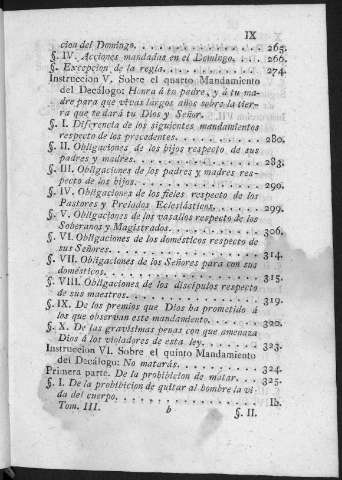 IX
cion del Domingo. . . . . . . . . . . . . . . 265.
§. IV. Acciones mandadas en el Domingo. . . 266.
§. Excepcion de la regla. . . . . . . . . . . . . 274.
Instruccion V. Sobre el quarto Mandamiento
del Decálogo: Honra á tu padre, y á tu ma-
dre para que vivas largos años sobre la tier-
ra que te dará tu Dios y Señor.
§. I. Diferencia de los siguientes mandamientos
respecto de los precedentes. . . . . . . . . . 280.
§. II. Obligaciones de los hijos respecto de sus
padres y madres. . . . . . . . . . . . . . . . 283.
§. III. Obligaciones de los padres y madres res-
pecto de los hijos. . . . . . . . . . . . . . . 290.
§. IV. Obligaciones de los fieles respecto de los
Pastores y Prelados Eclesiásticos. . . . . . . 299.
§. V. Obligaciones de los vasallos respecto de los
Soberanos y Magistrados. . . . . . . . . . . . 306.
§. VI. Obligaciones de los domésticos respecto de
sus Señores. . . . . . . . . . . . . . . . . . 314.
§. VII. Obligaciones de los Señores para con sus
domésticos. . . . . . . . . . . . . . . . . . . 315.
§. VIII. Obligaciones de los discípulos respecto
de sus maestros. . . . . . . . . . . . . . . . 319.
§. IX. De los premios que Dios ha prometido á
los que observan este mandamiento. . . . . . 320.
§. X. De las gravísimas penas con que amenaza
Dios á los violadores de esta ley. . . . . . . 323.
Instruccion VI. Sobre el quinto Mandamiento
del Decálogo: No matarás. . . . . . . . . . . 324.
Primera parte. De la prohibicion de matar. . . 325.
§. I. De la prohibicion de quitar al hombre la vi-
da del cuerpo. . . . . . . . . . . . . . . . . Ib.
Tom. III. b §. II.